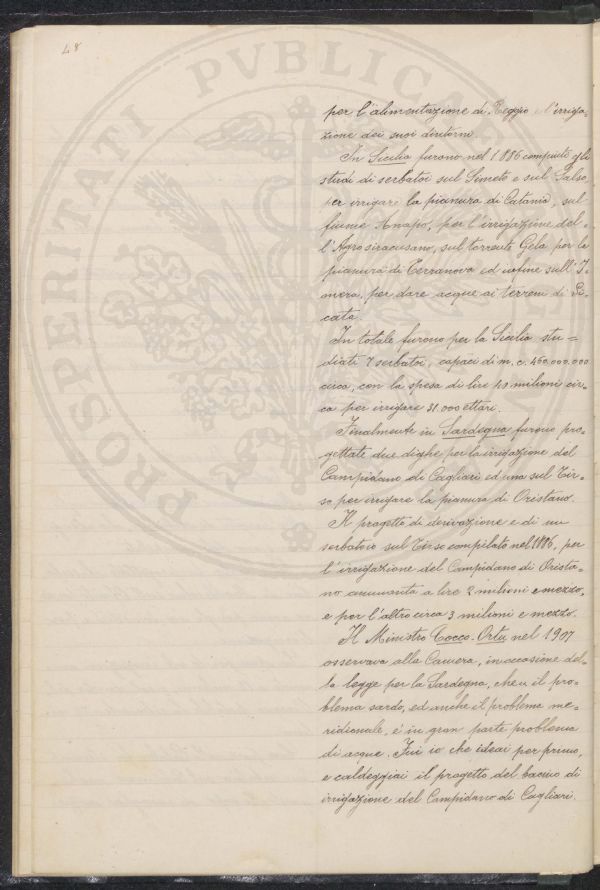 48
per l'alimentazione di Reggio e l'irriga-
zione dei suoi dintorni.
In Sicilia furono nel 1886 compiuti gli
studi di serbatoi sul Simeto e sul Salso,
per irrigare la pianura di Catania, sul
fiume Anapo, per l'irrigazione del-
l'Agro siracusano, sul torrente Gela per la
pianura di Terranova ed infine sull'I-
mera, per dare acque ai terreni di Li-
cata.
In totale furono per la Sicilia stu-
diati 7 serbatoi, capaci di m. c. 460.000.000
circa, con la spesa di lire 40 milioni cir-
ca per irrigare 31.000 ettari.
Finalmente in Sardegna furono pro-
gettate due dighe per la irrigazione del
Campidano di Cagliari ed una sul Tir-
so per irrigare la pianura di Oristano.
Il progetto di derivazione e di un
serbatoio sul Tirso compilato nel 1886, per
l'irrigazione del Campidano di Orista-
no ammonta a lire 2 milioni e mezzo,
e per l'altro circa 3 milioni e mezzo.
Il Ministro Cocco-Ortu nel 1907
osservava alla Camera, in occasione del-
la legge per la Sardegna, che « il pro-
blema sardo, ed anche il problema me-
ridionale, è in gran parte problema
di acque. Fui io che ideai per primo,
e caldeggiai il progetto del bacino di
irrigazione del Campidano di Cagliari.
PROSPERITATI PVBLICAE